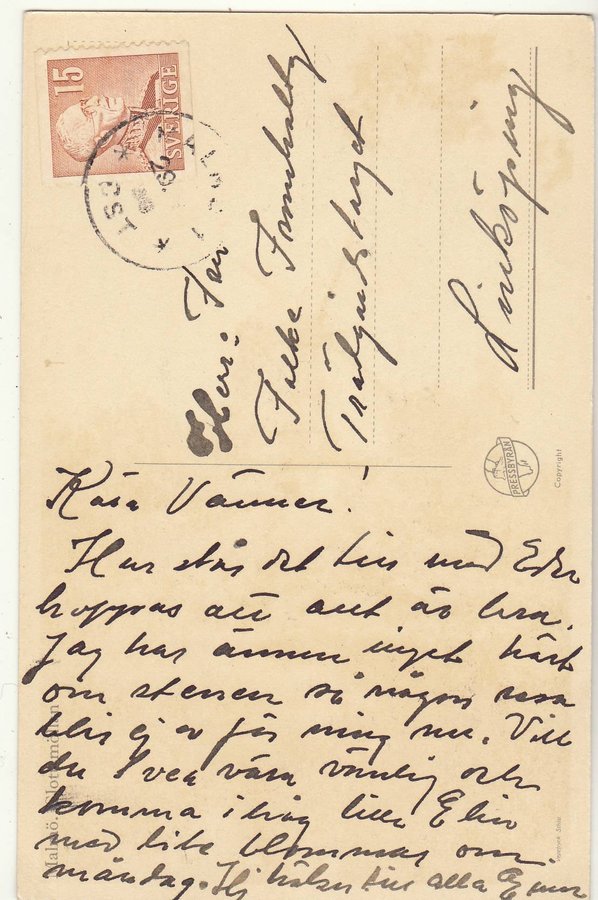 15
SVERIGE
Herr o Fru
Folke
Trädgårdstorget
Linköping
PRESSBYRÅN
Copyright
Kära Vänner!
Hur står det till med Eder
hoppas att allt är bra.
Jag har ännu inget hört
om stenen så någon resa
blir ej av för mig nu. Vill
du Svea vara vänlig och
komma ihåg lilla Elin
med lite blommor om
måndag. Hej hälsn till alla
Malmö. Slottsmöllan